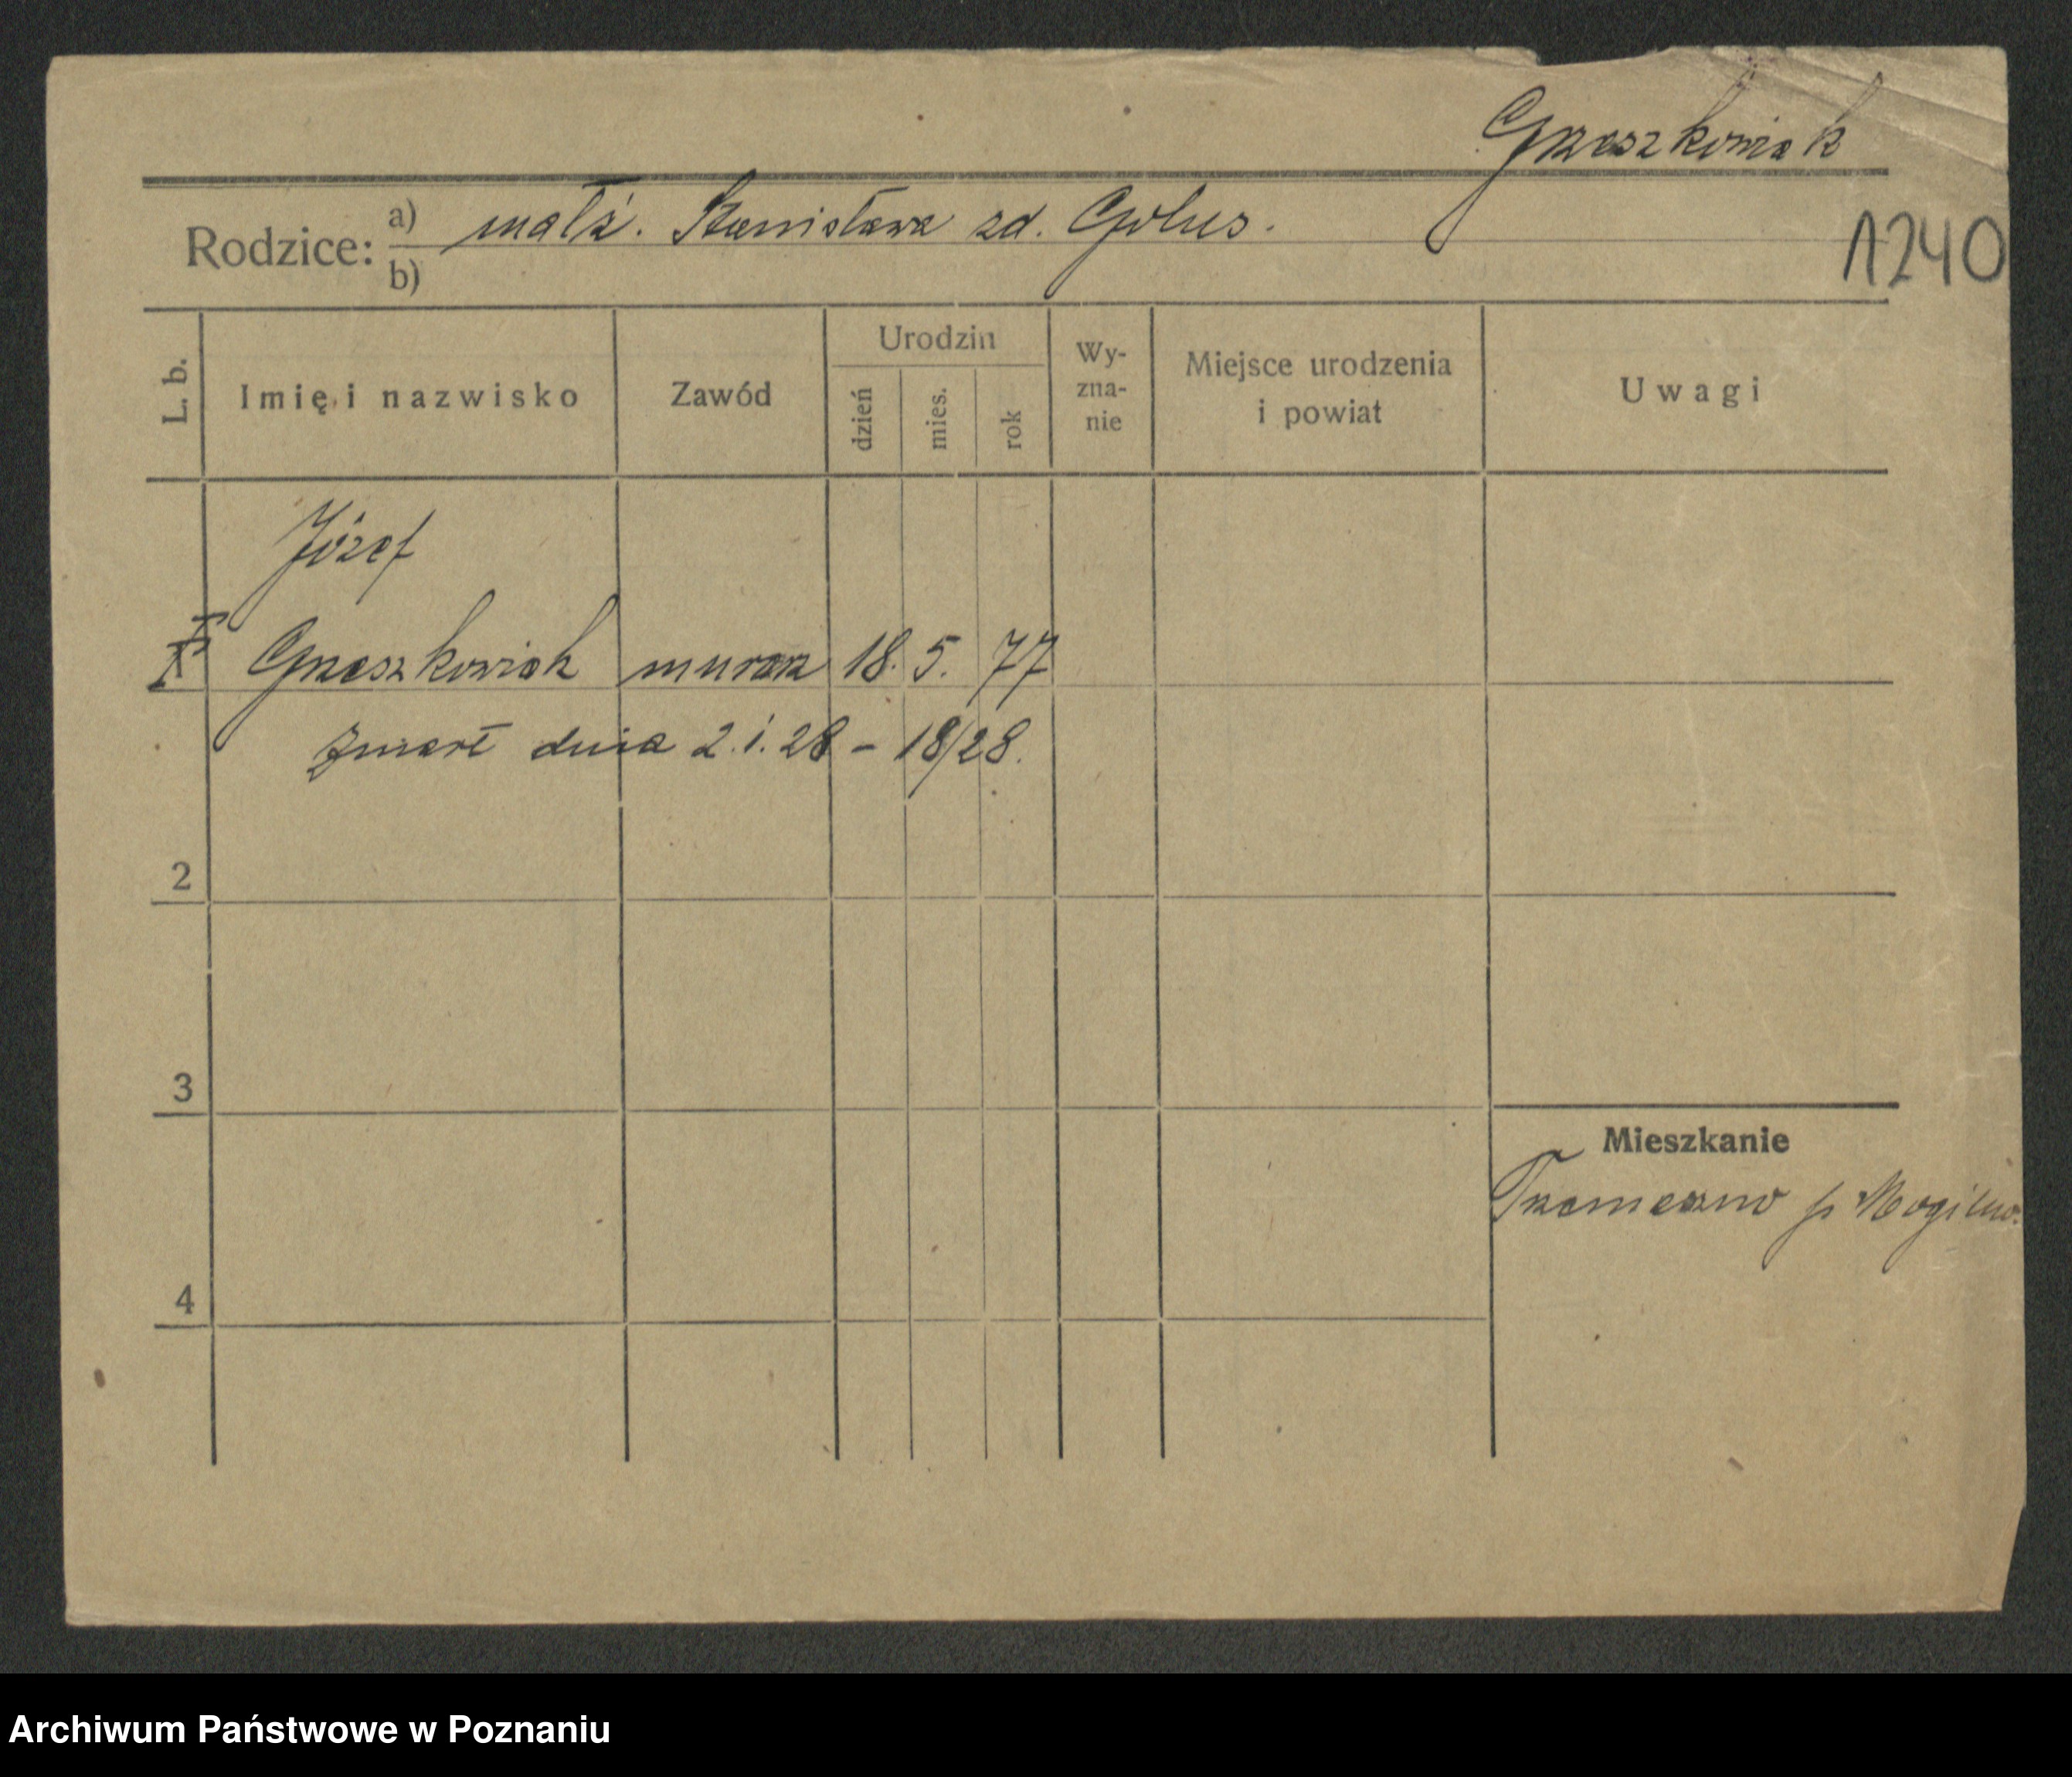 Grzeszkowiak
Rodzice: a) małż. Stanisława zd. Golus.
b)
1240
L. b.
Imię i nazwisko
Zawód
Urodzin
dzień
mies.
rok
Wy-
zna-
nie
Miejsce urodzenia
i powiat
Uwagi
Józef
Grzeszkowiak murarz 18. 5. 77
zmarł dnia 2.1.28 - 18/28.
2
3
Mieszkanie
Trzemeszno p Mogilno.
4
Archiwum Państwowe w Poznaniu